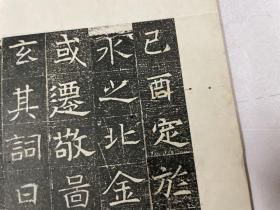 己酉定於
水之北金
或遷敬啚
玄其詞曰